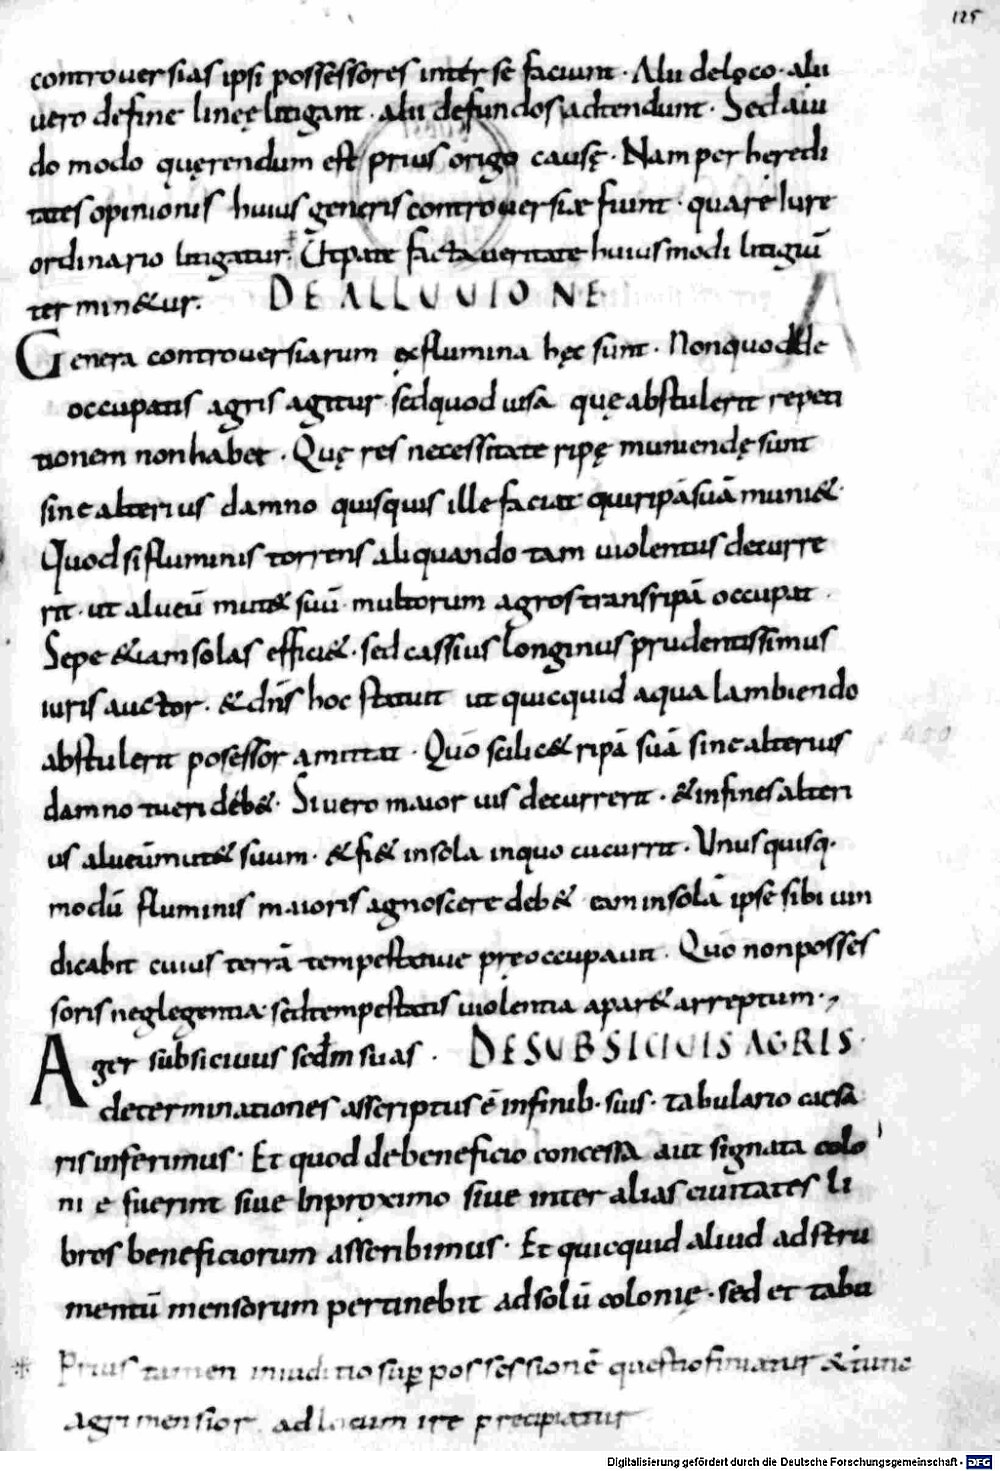 125
controuersias ipsi possessores inter se faciunt · Alii deloco · alii
uero define lineę litigant · alii defundos adtendunt · Sed aiu
do modo quęrendum est prius origo causę · Nam per heredi
tates opinionis huius generis controuersiæ fiunt · quare Iure
ordinario litigatur · Ut pate facta ueritate huiusmodi litigiū
termin&ur · DE ALLUUIONE
Genera controuersiarum ex flumina hęc sunt · Nonquod de
occupatis agris agitur sed quod uisa quę abstulerit repeti
tionem non habet · Quę res necessitate ripę muniendę sunt
sine alterius damno quisquis ille faciat qui ripā suā muni& ·
Quod si fluminis torrens aliquando tam uiolentus decurre
rit · ut alueū mut& suū · multorum agros transripā occupat ·
Sepe &iam solas effici& · sed cassius Longinus prudentissimus
iuris auctor · & dn̄s hoc statuit ut quicquid aqua lambiendo
abstulerit posessor amittat · Quō scilic& ripā suā sine alterius
damno tueri deb& · Si uero maior uis decurrerit · & infines alteri
us alueū mut& suum · & fi& insola inquo cucurrit · Unus quisq ·
modū fluminis maioris agnoscere deb& eam insolā ipse sibi uin
dicabit cuius terrā tempestatiue pręoccupauit · Quō non posses
soris neglegentia · sed tempestatis uiolentia apar& arreptum ·
Ager subsiciuus sedm̄ suas · DE SUBSICIUIS AGRIS ·
determinationes asscriptus ē infinib · suis · tabulario caesa
ris inferimus · Et quod debeneficio concessa aut signata colo
ni e fuerint siue Inproximo siue inter alias ciuitates Li
bros beneficiorum asscribimus · Et quicquid aliud adstru
mentū mensorum pertinebit ad solū colonię · sed et tabu
Prius tamen inuditio sup possessionē questio finiatur & tunc
agri mensior ad locum ire precipiatur
Digitalisierung gefördert durch die Deutsche Forschungsgemeinschaft - DFG